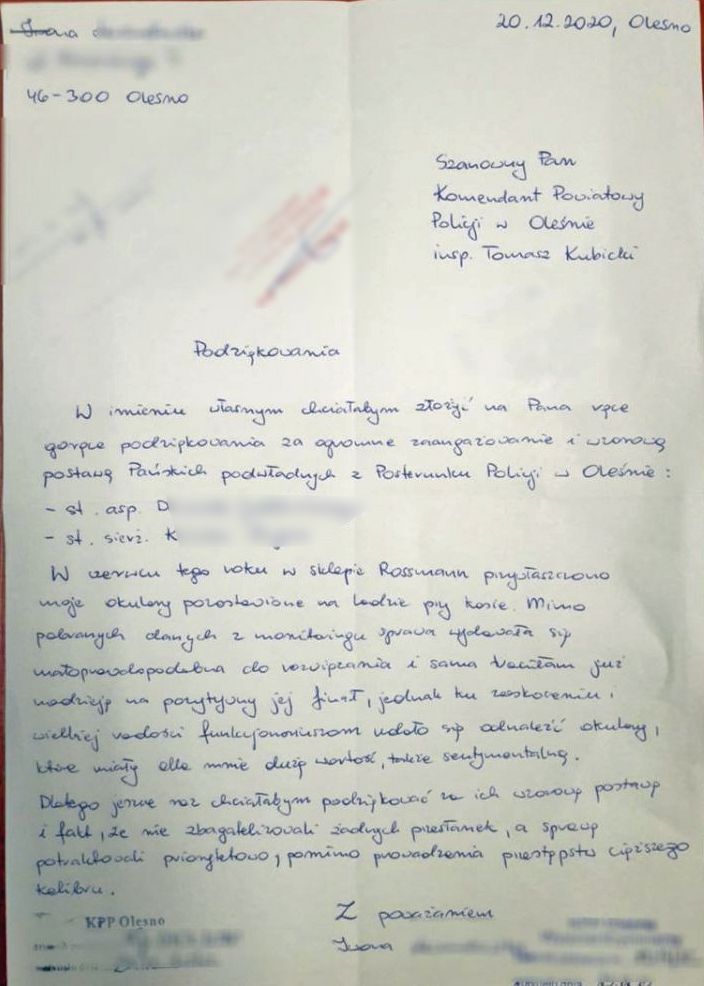 Iwona
20.12.2020, Olesno
46-300 Olesno
Szanowny Pan
Komendant Powiatowy
Policji w Oleśnie
insp. Tomasz Kubicki
Podziękowania
W imieniu własnym chciałabym złożyć na Pana ręce
gorące podziękowania za ogromne zaangażowanie i wzorową
postawę Pańskich podwładnych z Posterunku Policji w Oleśnie:
- st. asp. D
- st. sierż. K
W czerwcu tego roku w sklepie Rossmann przywłaszczono
moje okulary pozostawione na ladzie przy kasie. Mimo
pobranych danych z monitoringu sprawa wydawała się
małoprawdopodobna do rozwiązania i sama traciłam już
nadzieję na pozytywny jej finał, jednak ku zaskoczeniu i
wielkiej radości funkcjonariuszom udało się odnaleźć okulary,
które miały dla mnie dużą wartość, także sentymentalną.
Dlatego jeszcze raz chciałabym podziękować za ich wzorową postawę
i fakt, że nie zbagatelizowali żadnych przesłanek, a sprawę
potraktowali priorytetowo, pomimo prowadzenia przestępstw cięższego
kalibru.
Z poważaniem
Iwona
KPP Olesno